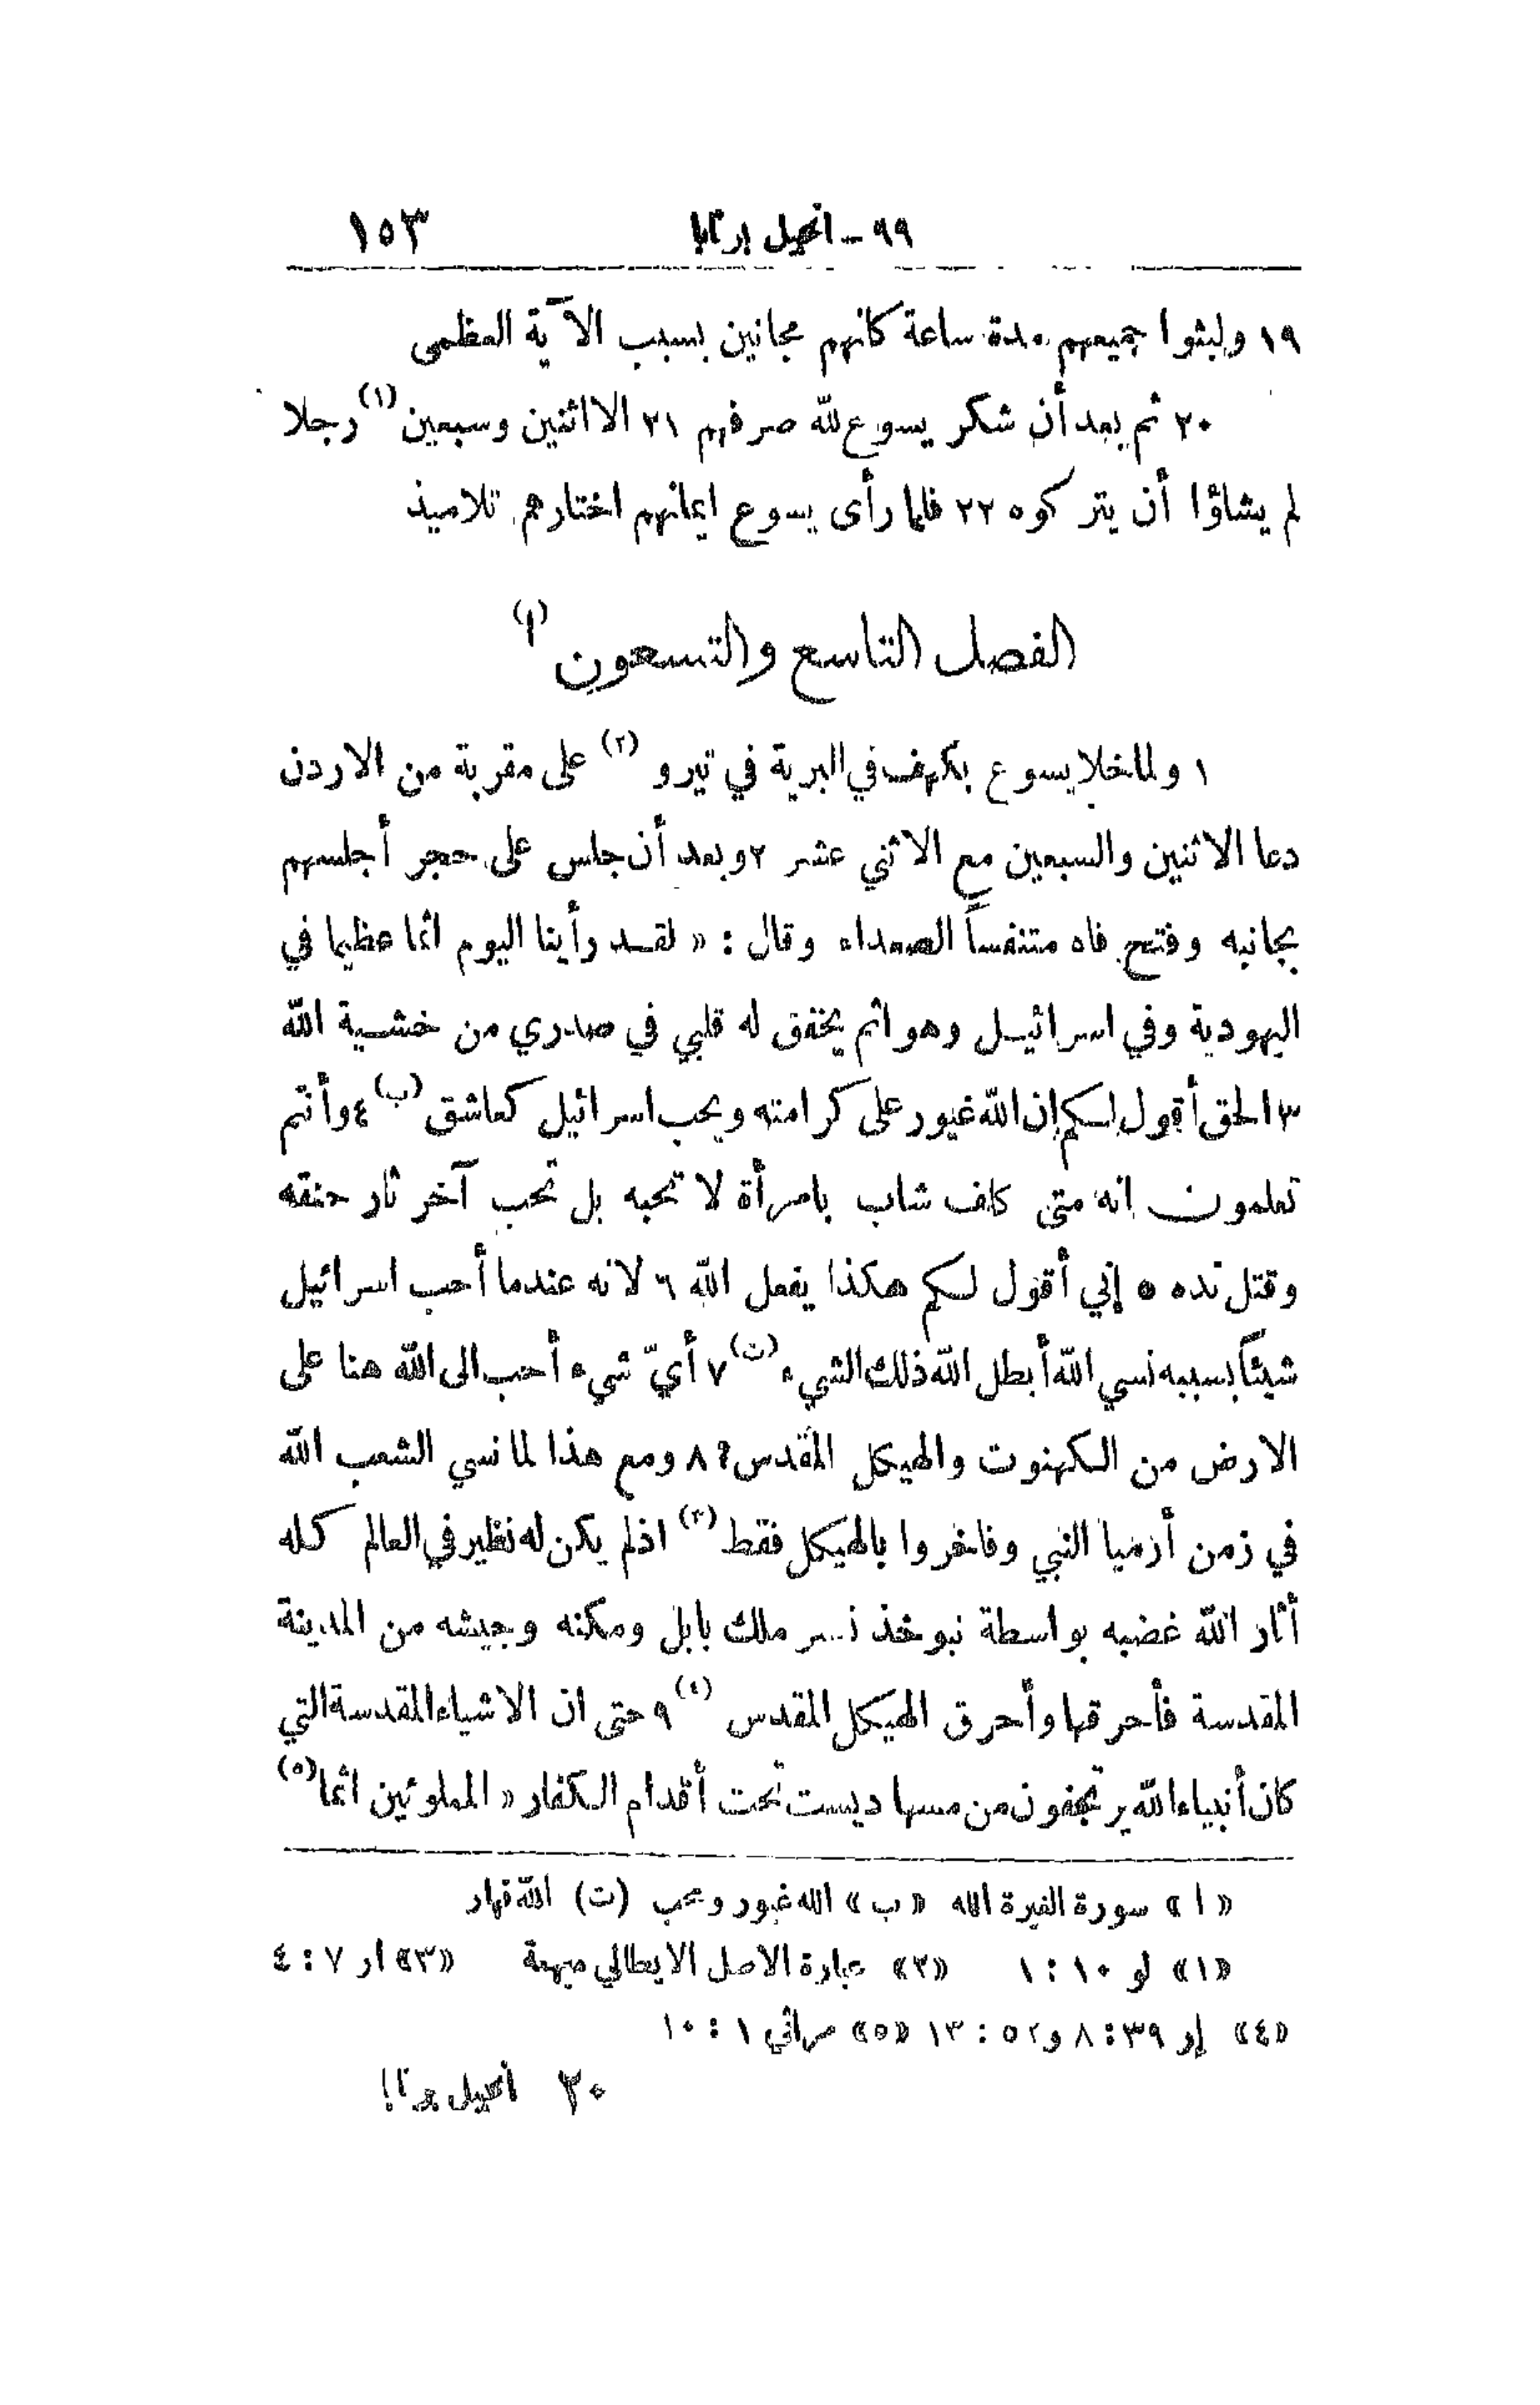 ٩٩ - انجيل برنابا ١٥٣
١٩ ولبثوا جميعهم مدة ساعة كانهم مجانين بسبب الآية العظمى
٢٠ ثم بعد أن شكر يسوع لله صرفهم ٢١ الا اثنين وسبعين (١) رجلا
لم يشاؤا أن يتركوه ٢٢ فلما رأى يسوع ايمانهم اختارهم تلاميذ
الفصل التاسع والتسعون (ا)
١ ولما خلا يسوع بكهف في البرية في تيرو (٢) على مقربة من الاردن
دعا الاثنين والسبعين مع الاثني عشر ٢ وبعد أن جلس على حجر أجلسهم
بجانبه وفتح فاه متنفساً الصعداء وقال : « لقد رأينا اليوم اثما عظيما في
اليهودية وفي اسرائيل وهو اثم يخفق له قلبي في صدري من خشية الله
٣ الحق أقول لكم إن الله غيور على كرامته ويحب اسرائيل كعاشق (ب) ٤ وأنتم
تعلمون انه متى كلف شاب بامرأة لا تحبه بل تحب آخر ثار حنقه
وقتل نده ٥ إني أقول لكم هكذا يفعل الله ٦ لانه عندما أحب اسرائيل
شيئاً بسببه نسي الله أبطل الله ذلك الشيء (ت) ٧ أيّ شيء أحب الى الله هنا على
الارض من الكهنوت والهيكل المقدس؟ ٨ ومع هذا لما نسي الشعب الله
في زمن أرميا النبي وفاخروا بالهيكل فقط (٣) اذ لم يكن له نظير في العالم كله
أثار الله غضبه بواسطة نبوخذ نسر ملك بابل ومكنه وجيشه من المدينة
المقدسة فأحرقها وأحرق الهيكل المقدس (٤) ٩ حتى ان الاشياء المقدسة التي
كان أنبياء الله يرتجفون من مسها ديست تحت أقدام الكفار « المملوئين اثما (٥)
« ا » سورة الغيرة الله « ب » الله غيور ومحب (ت) الله قهار
«١» لو ١٠ : ١ «٢» عبارة الاصل الايطالي مبهمة «٣» ار ٧ : ٤
«٤» إر ٣٩ : ٨ و٥٢ : ١٣ «٥» مراثي ١ : ١٠
٢٠ انجيل برنابا